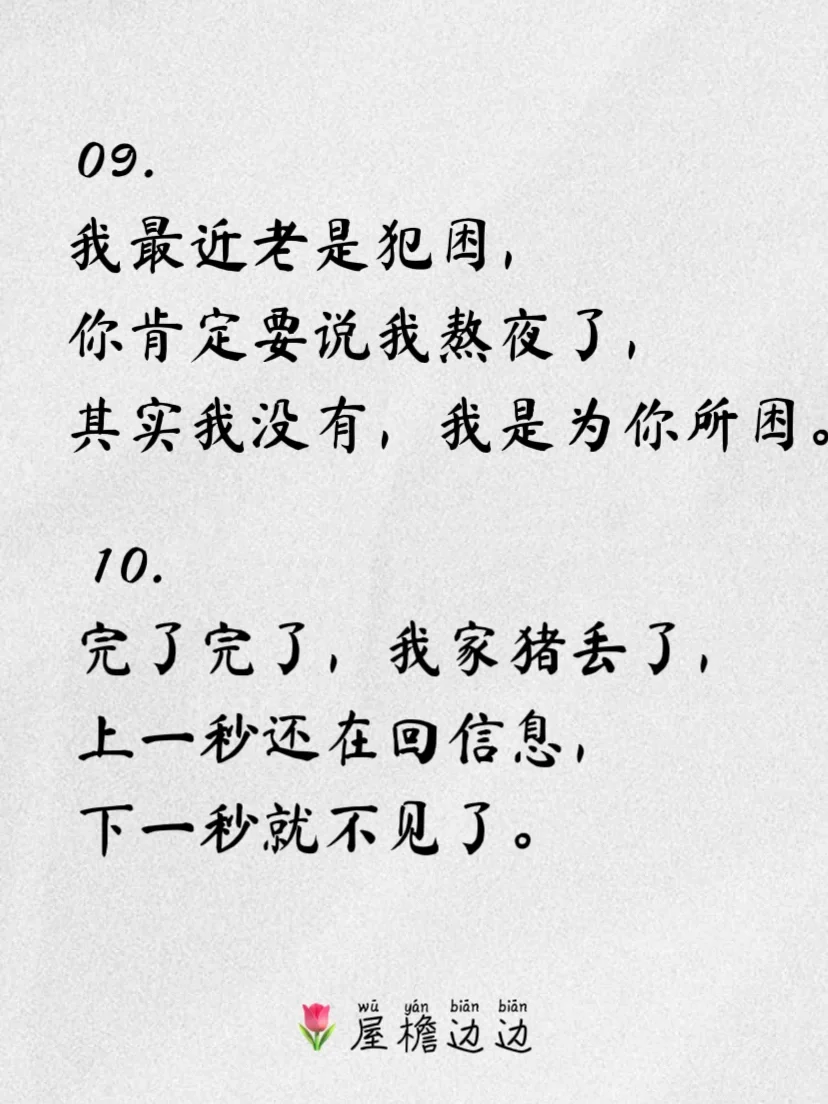 09.
我最近老是犯困，
你肯定要说我熬夜了，
其实我没有，我是为你所困。
10.
完了完了，我家猪丢了，
上一秒还在回信息，
下一秒就不见了。
wū yán biān biān
屋檐边边